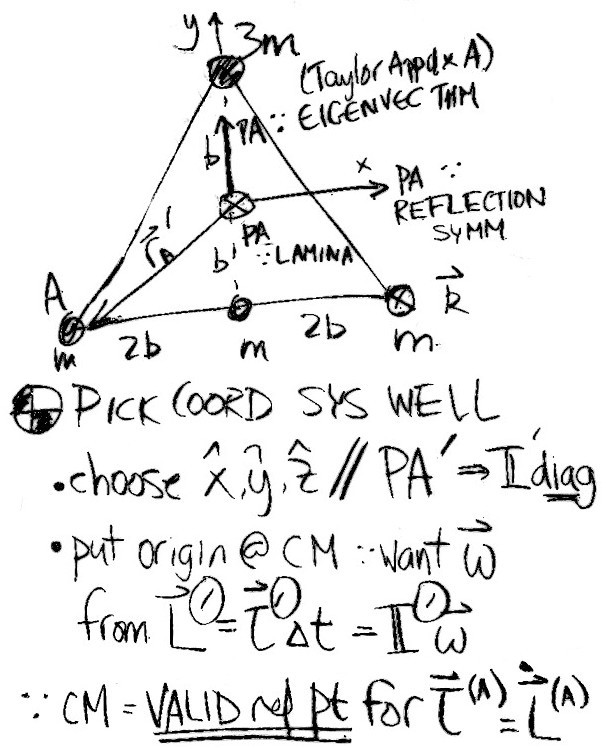 y 3m
(Taylor Appdx A)
PA ∵ EIGENVEC THM
b
x
PA ∵
REFLECTION
SYMM
r⃗A'
PA
∵ LAMINA
b
A
k⃗
m 2b m 2b m
PICK COORD SYS WELL
• choose x̂, ŷ, ẑ // PA' ⇒ 𝕀' diag
• put origin @ CM ∵ want ω⃗
from L⃗ = τ⃗ Δt = 𝕀 ω⃗
∵ CM = VALID ref pt for τ⃗(A) = L⃗̇(A)